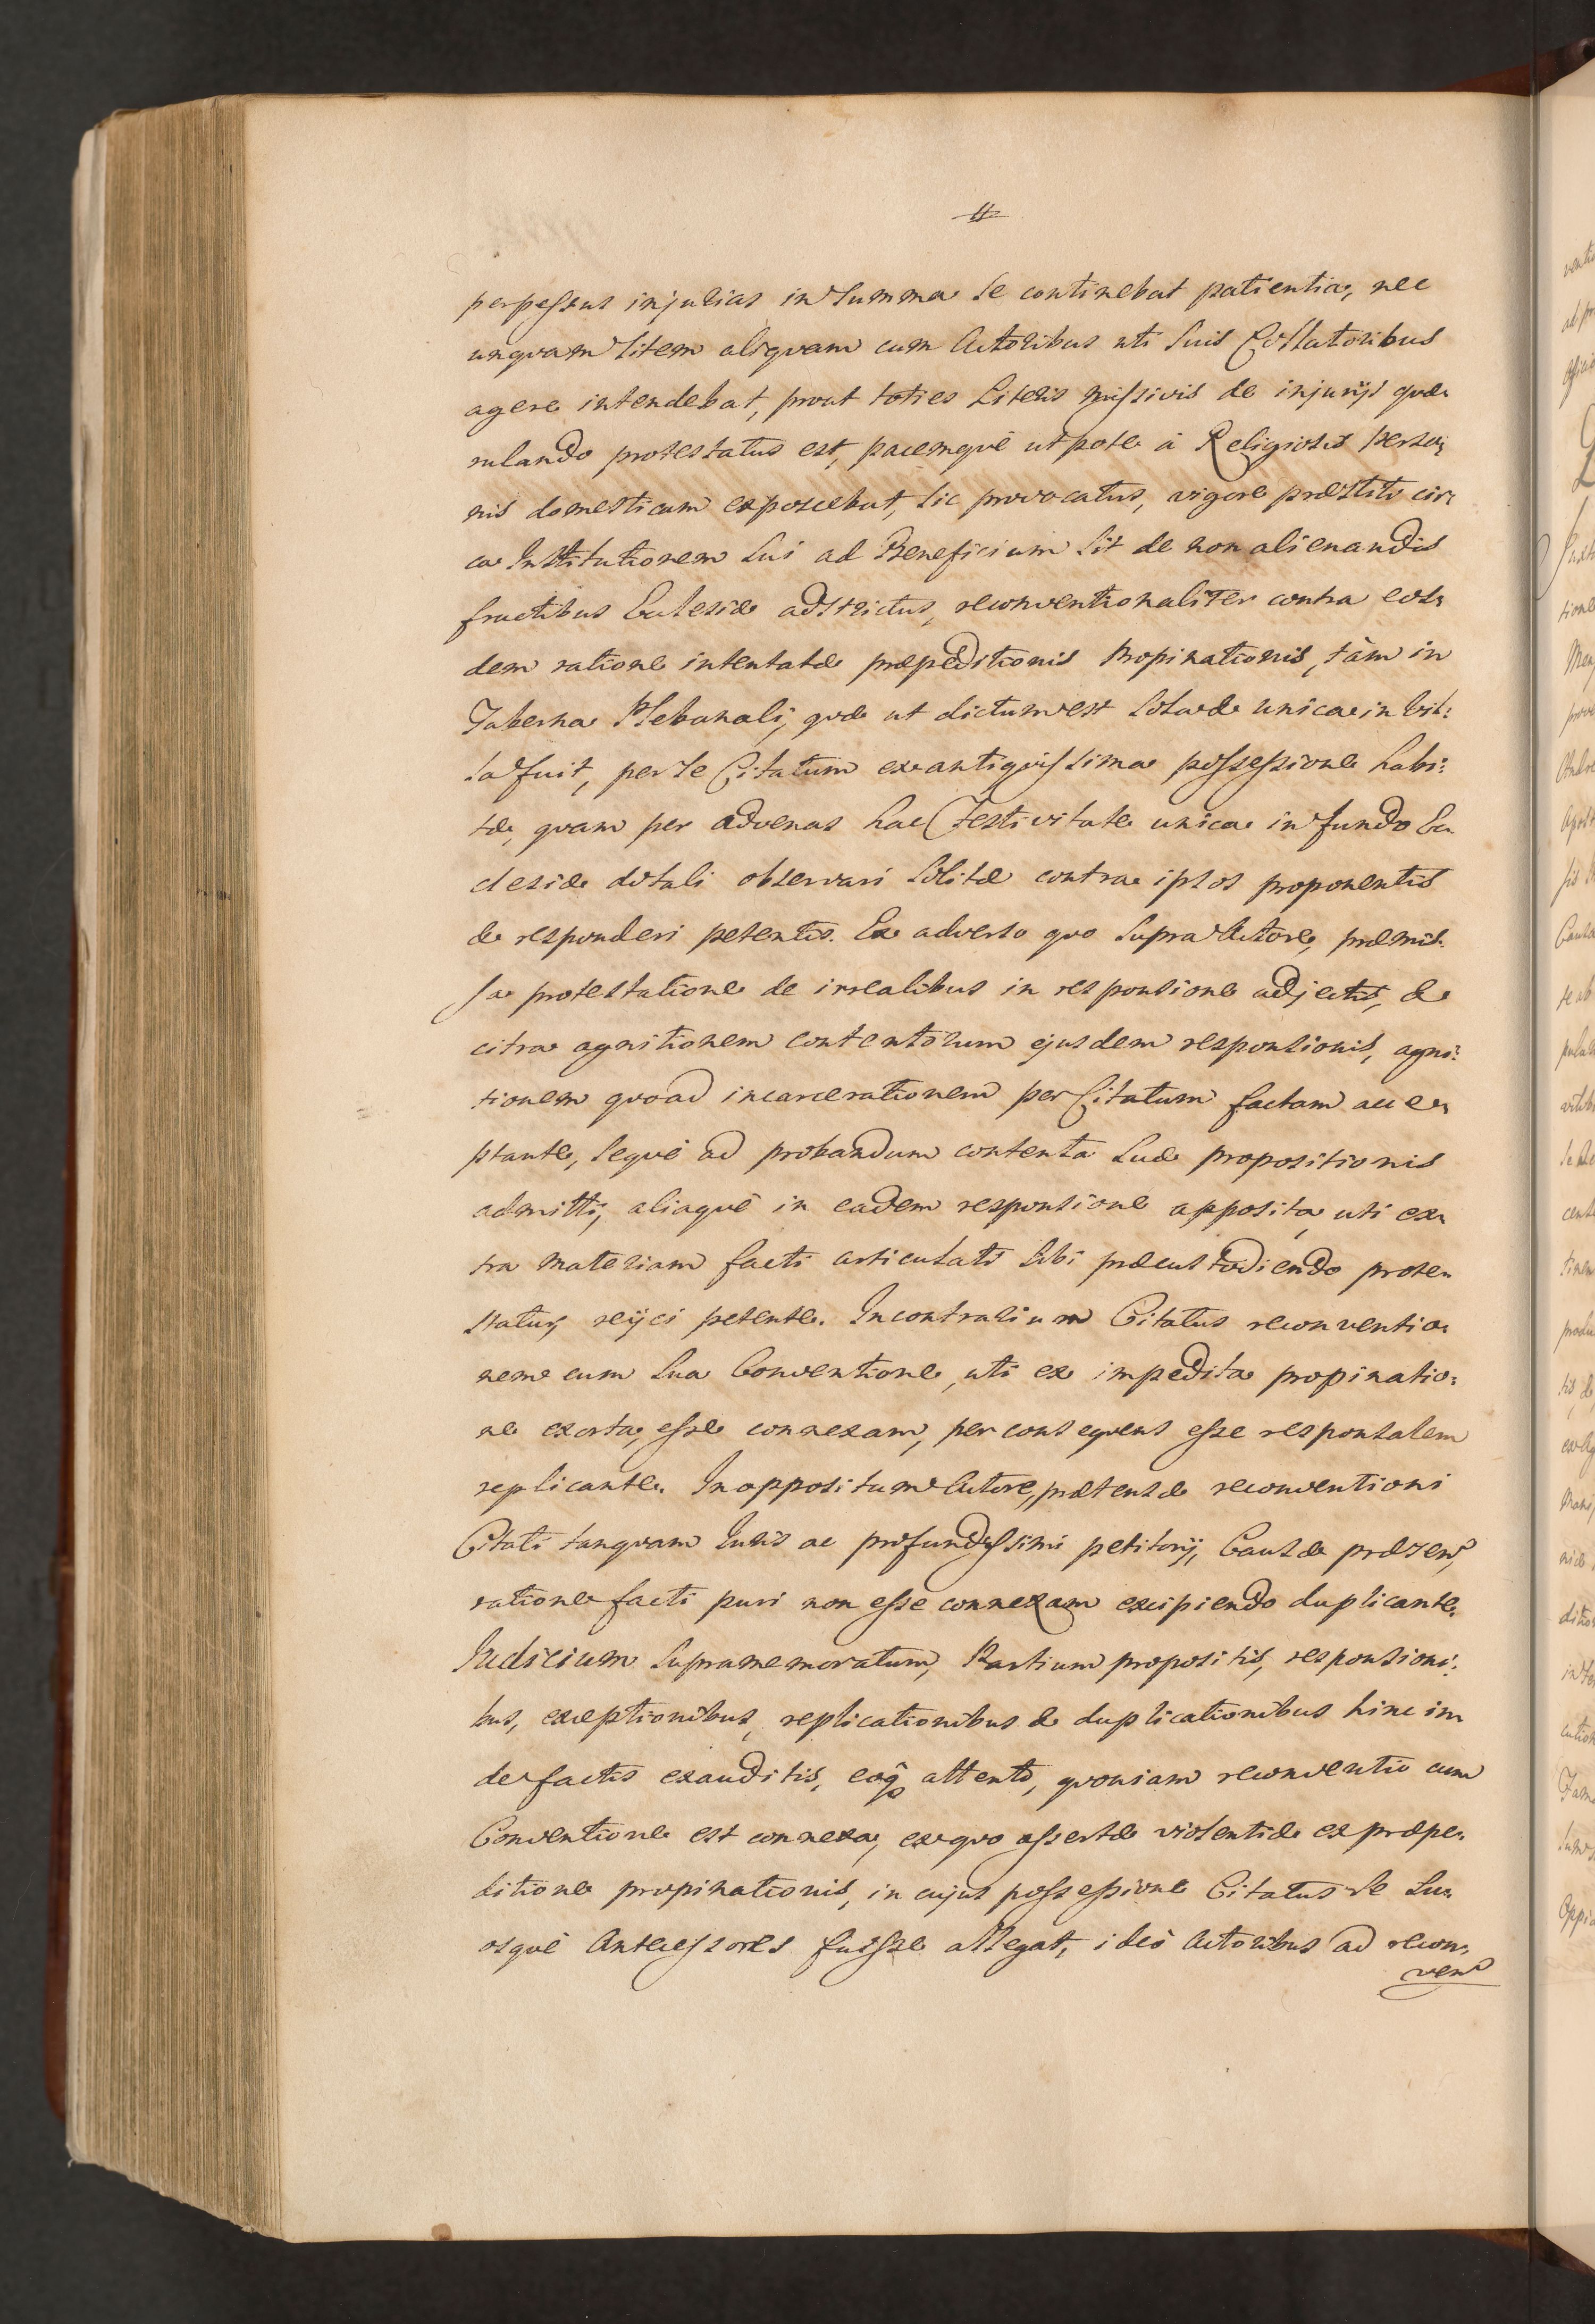 #
perpessus injurias in summa se continebat patientia, nec
unquam litem aliquam cum Actoribus uti suis Collatoribus
agere intendebat, prout toties Literis missivis de injurijs quæ-
rulando protestatus est, pacemquè utpote à Religiosis perso-
nis domesticam exposcebat, sic provocatus, vigore præstiti cir-
ca Institutionem sui ad Beneficium sit de non alienandis
fructibus Ecclesiæ adstrictus, reconventionaliter contra eos-
dem ratione intentatæ præpeditionis Propinationis, tàm in
Taberna Plebanali, quæ ut dictum est sola & unica in Vil:
la fuit, per se Citatum ex antiquissima possessione habi:
tæ, quam per advenas hac Festivitate unica in fundo Ec
clesiæ dotali observari solitæ contra ipsos proponentis
& responderi petentis. Ex adverso quo supra Actore, præmis-
sa protestatione de irrealibus in responsione adjectis, &
citra agnitionem contentorum ejusdem responsionis, agni:
tionem quoad incarcerationem per Citatum factam acce-
ptante, sequè ad probandum contenta suæ propositionis
admitti, aliaquè in eadem responsione apposita, uti ex-
tra materiam facti articulati sibi præcustodiendo prote-
statur, reijci petente. Incontrarium Citatus reconventio-
nem cum sua Conventione, uti ex impedita propinatio:
ne exorta, esse connexam, per consequens esse responsalem
replicante. In oppositum Actore, prætensæ reconventioni
Citati tanquam Juris ac profundissimi petitorij, Causæ præsen,
ratione facti puri non esse connexam excipiendo duplicante.
Judicium supramemoratum, Partium propositis, responsioni:
bus, exceptionibus, replicationibus & duplicationibus hinc in
de factis exauditis, eoq₃ attento, quoniam reconventio cum
Conventione est connexa, ex quo assertæ violentiæ ex præpe-
ditione propinationis, in cujus possessione Citatus se su-
osquè Antecessores fuisse allegat, ideò Actoribus ad recon-
ven